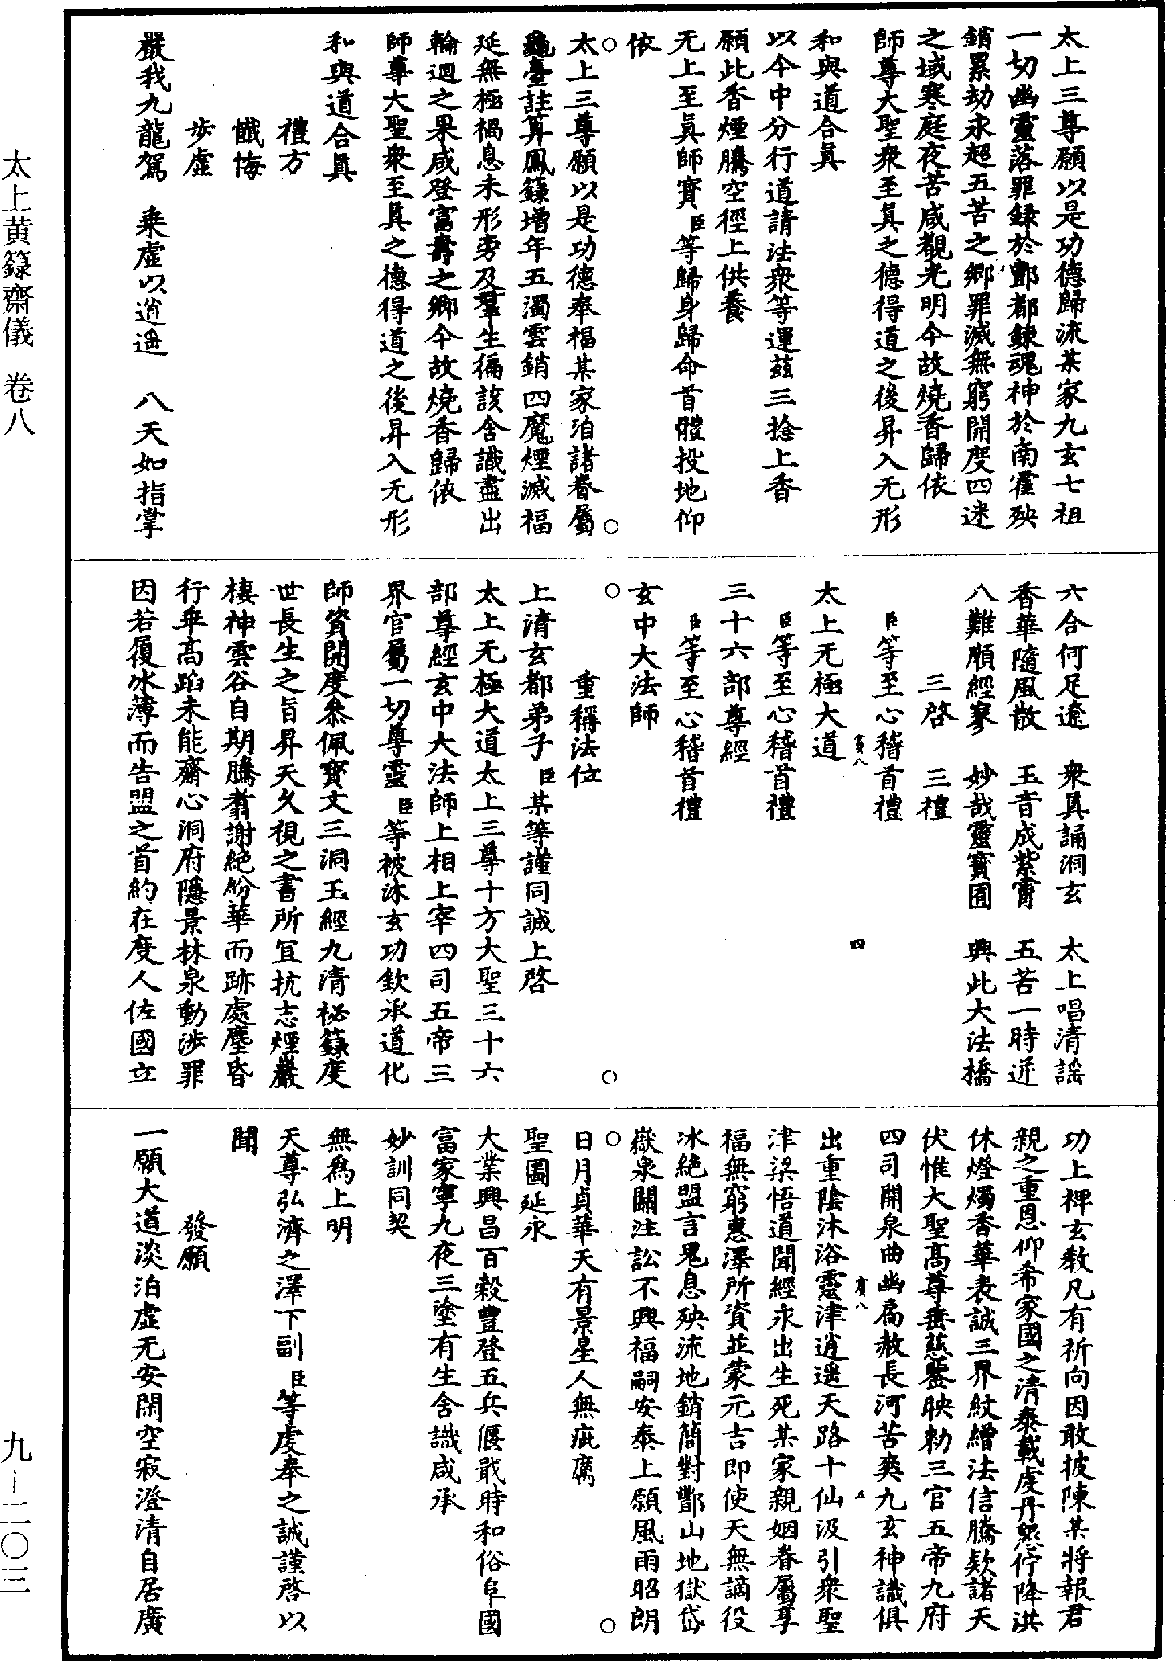 太上三尊願以是功德歸流某家九玄七祖
一切幽靈落罪録於酆都鍊魂神於南霍殃
銷累劫永超五苦之鄉罪滅無窮開度四迷
之域寒庭夜苦咸觀光明今故燒香歸依
師尊大聖衆至真之德得道之後昇入无形
和與道合真
以今中分行道請法衆等運茲三捻上香
願此香煙騰空徑上供養
无上至真師寶臣等歸身歸命首體投地仰
依
太上三尊願以是功德奉福某家洎諸眷屬
龜臺註算鳳籙增年五濁雲銷四魔煙滅福
延無極禍息未形旁及羣生徧該含識盡出
輪迴之果咸登富壽之鄉今故燒香歸依
師尊大聖衆至真之德得道之後昇入无形
和與道合真
禮方
懺悔
步虛
嚴我九龍駕 乘虛以逍遥 八天如指掌
六合何足遼 衆真誦洞玄 太上唱清謠
香華隨風散 玉音成紫霄 五苦一時迸
八難順經寥 妙哉靈寶囿 興此大法橋
三啓 三禮
臣等至心稽首禮
太上无極大道
臣等至心稽首禮
三十六部尊經
臣等至心稽首禮
玄中大法師
重稱法位
上清玄都弟子臣某等謹同誠上啓
太上无極大道太上三尊十方大聖三十六
部尊經玄中大法師上相上宰四司五帝三
界官屬一切尊靈臣等被沐玄功欽承道化
師資開度叅佩寶文三洞玉經九清祕籙度
世長生之旨昇天久視之書所冝抗志煙巖
棲神雲谷自期騰翥謝絶紛華而跡處塵昏
行乖高蹈未能齋心洞府隱景林泉動涉罪
因若履冰薄而告盟之首約在度人佐國立
功上裨玄教凡有祈向因敢披陳某將報君
親之重恩仰希家國之清泰載虔丹懇佇降洪
休燈燭香華表誠三界紋繒法信騰欵諸天
伏惟大聖高尊垂慈鑒映勑三官五帝九府
四司開泉曲幽扃赦長河苦爽九玄神識俱
出重陰沐浴靈津逍遥天路十仙汲引衆聖
津梁悟道聞經永出生死某家親姻眷屬享
福無窮惠澤所資並蒙元吉即使天無謫役
冰絶盟言鬼息殃流地銷簡對酆山地獄岱
嶽泉關注訟不興福嗣安泰上願風雨昭朗
日月貞華天有景星人無疵厲
聖圖延永
大業興昌百穀豐登五兵偃戢時和俗阜國
富家寧九夜三塗有生含識咸承
妙訓同契
無為上明
天尊弘濟之澤下副臣等虔奉之誠謹啓以
聞
發願
一願大道淡泊虛无安閑空寂澄清自居廣
太上黄籙齋儀 卷八
九—二〇三